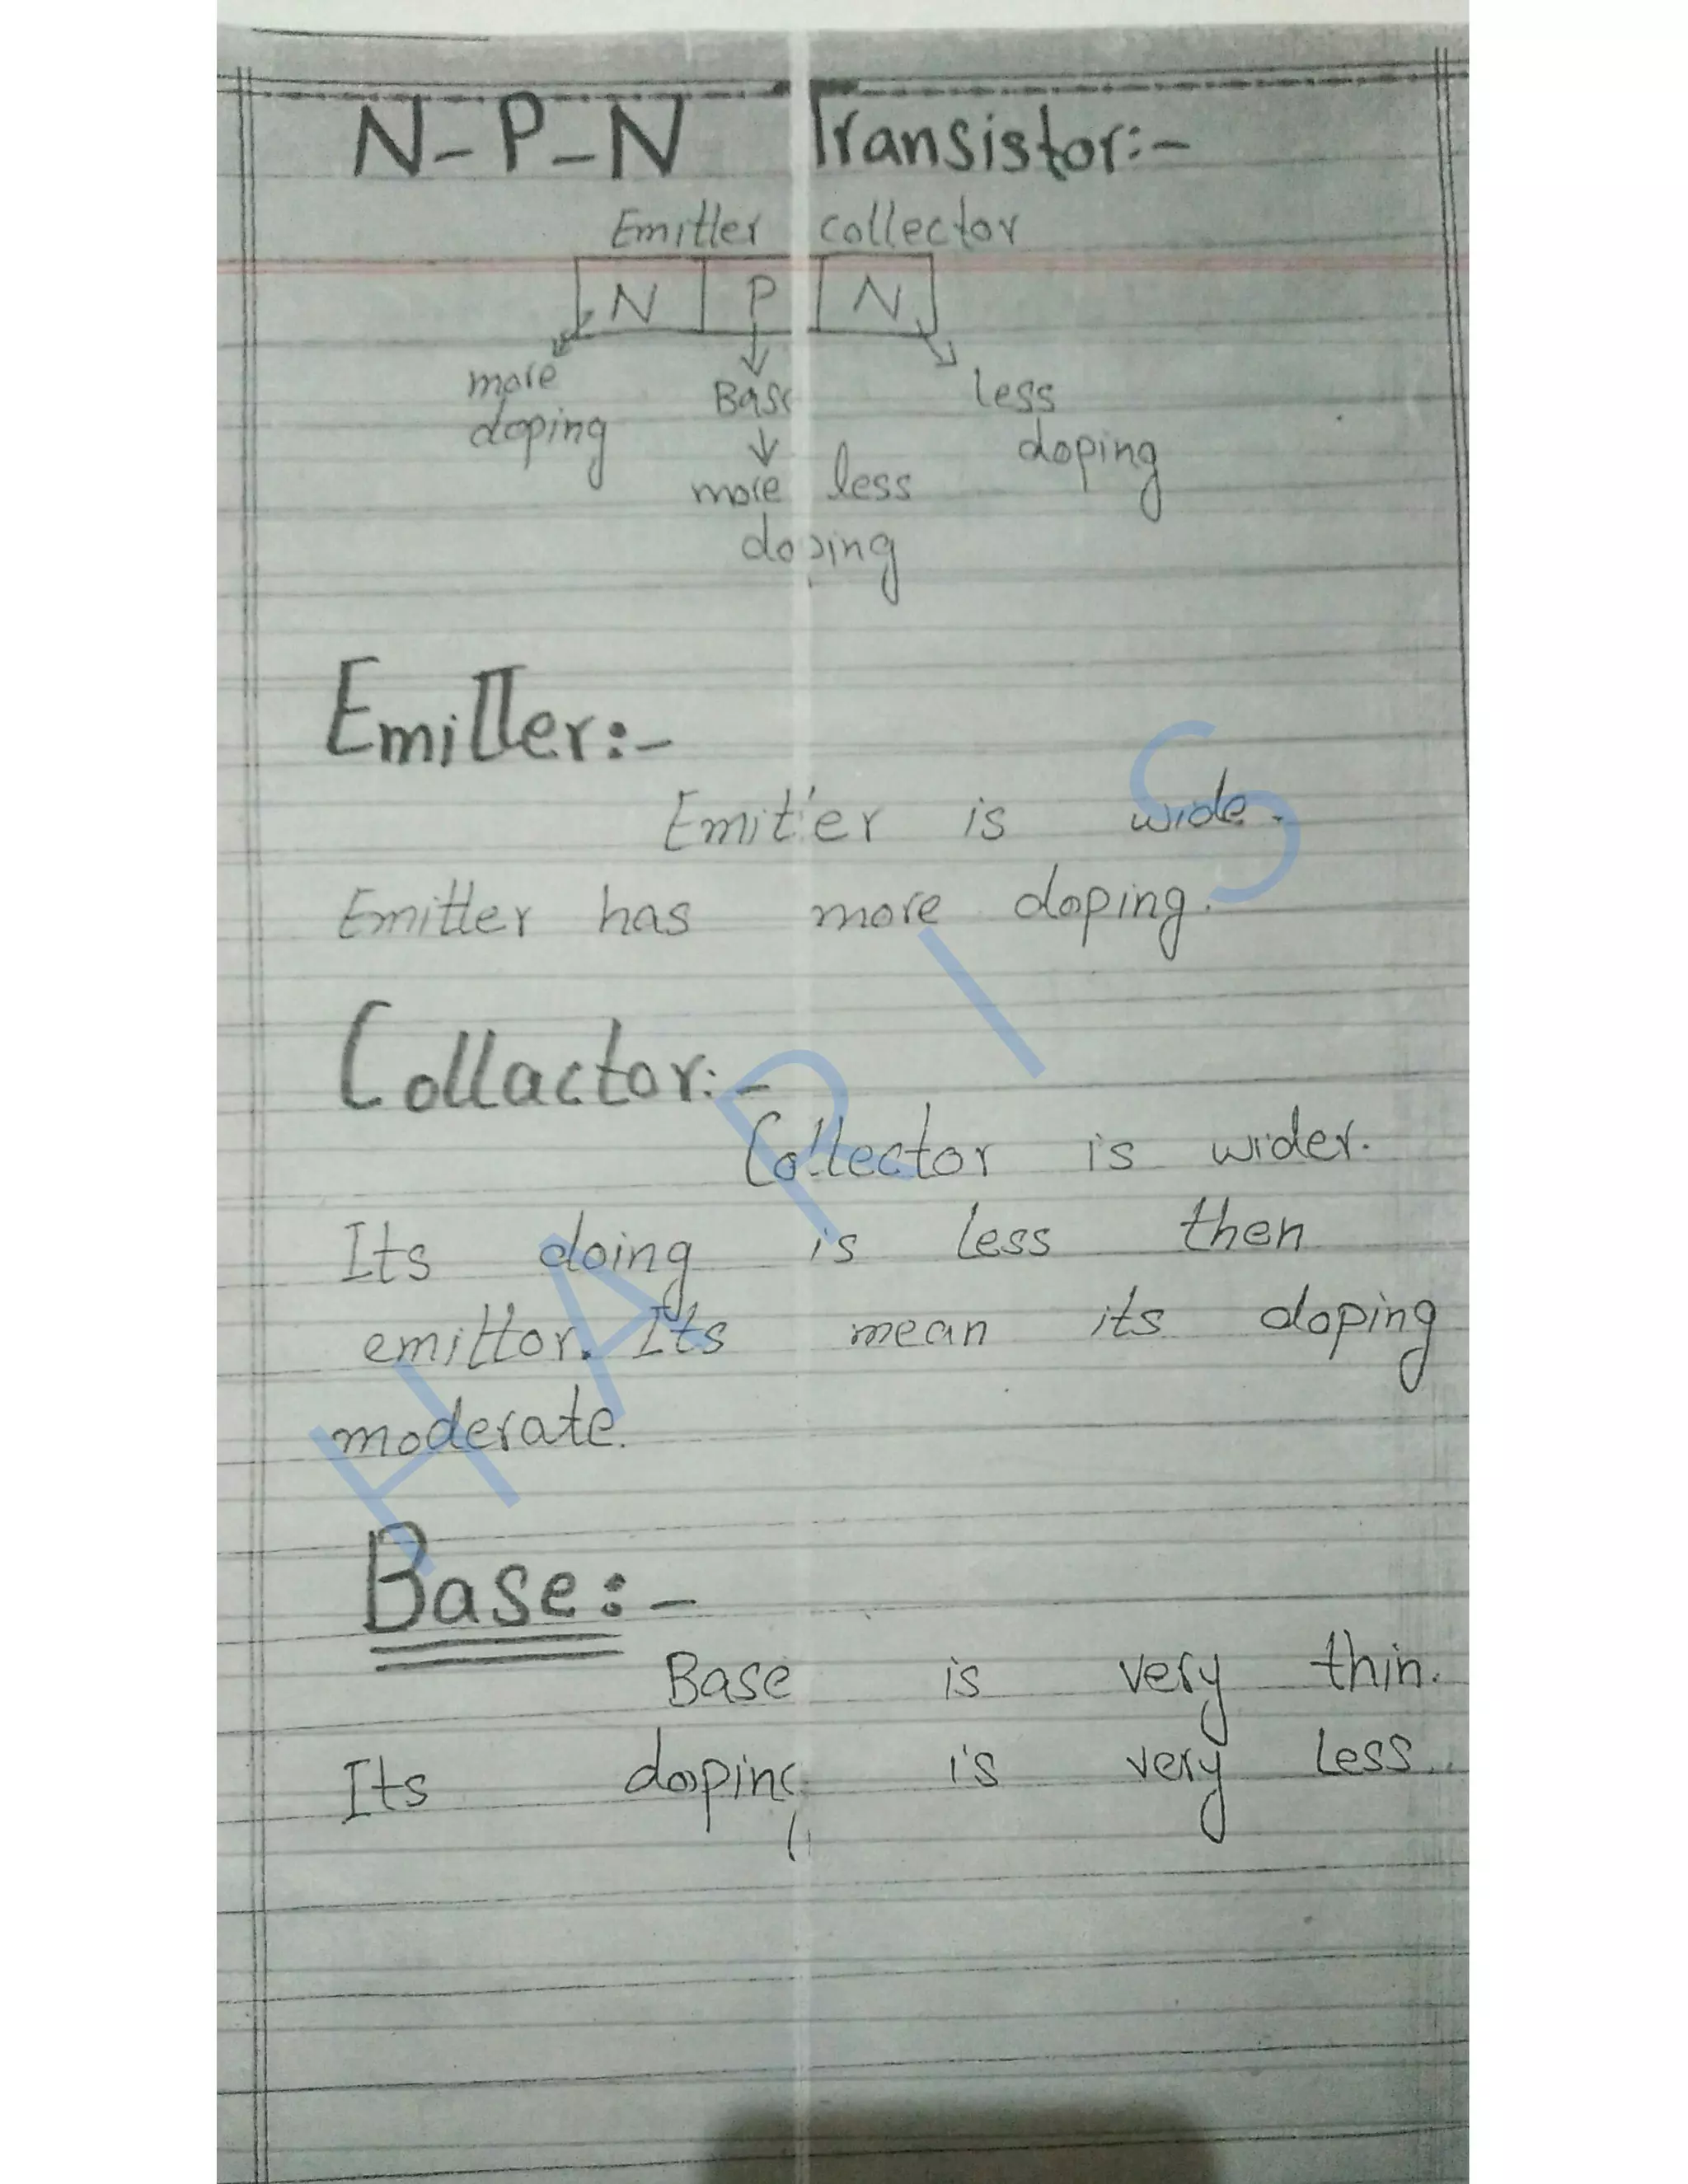 N-P-N Transistor:-
Emitter collector
N P N
more Base less
doping ↓ doping
more less
doping
Emitter:-
Emitter is wide.
Emitter has more doping.
Collactor:-
Collector is wider.
Its doing is less then
emittor. Its mean its doping
moderate.
Base:-
Base is very thin.
Its doping is very less.
HARIS